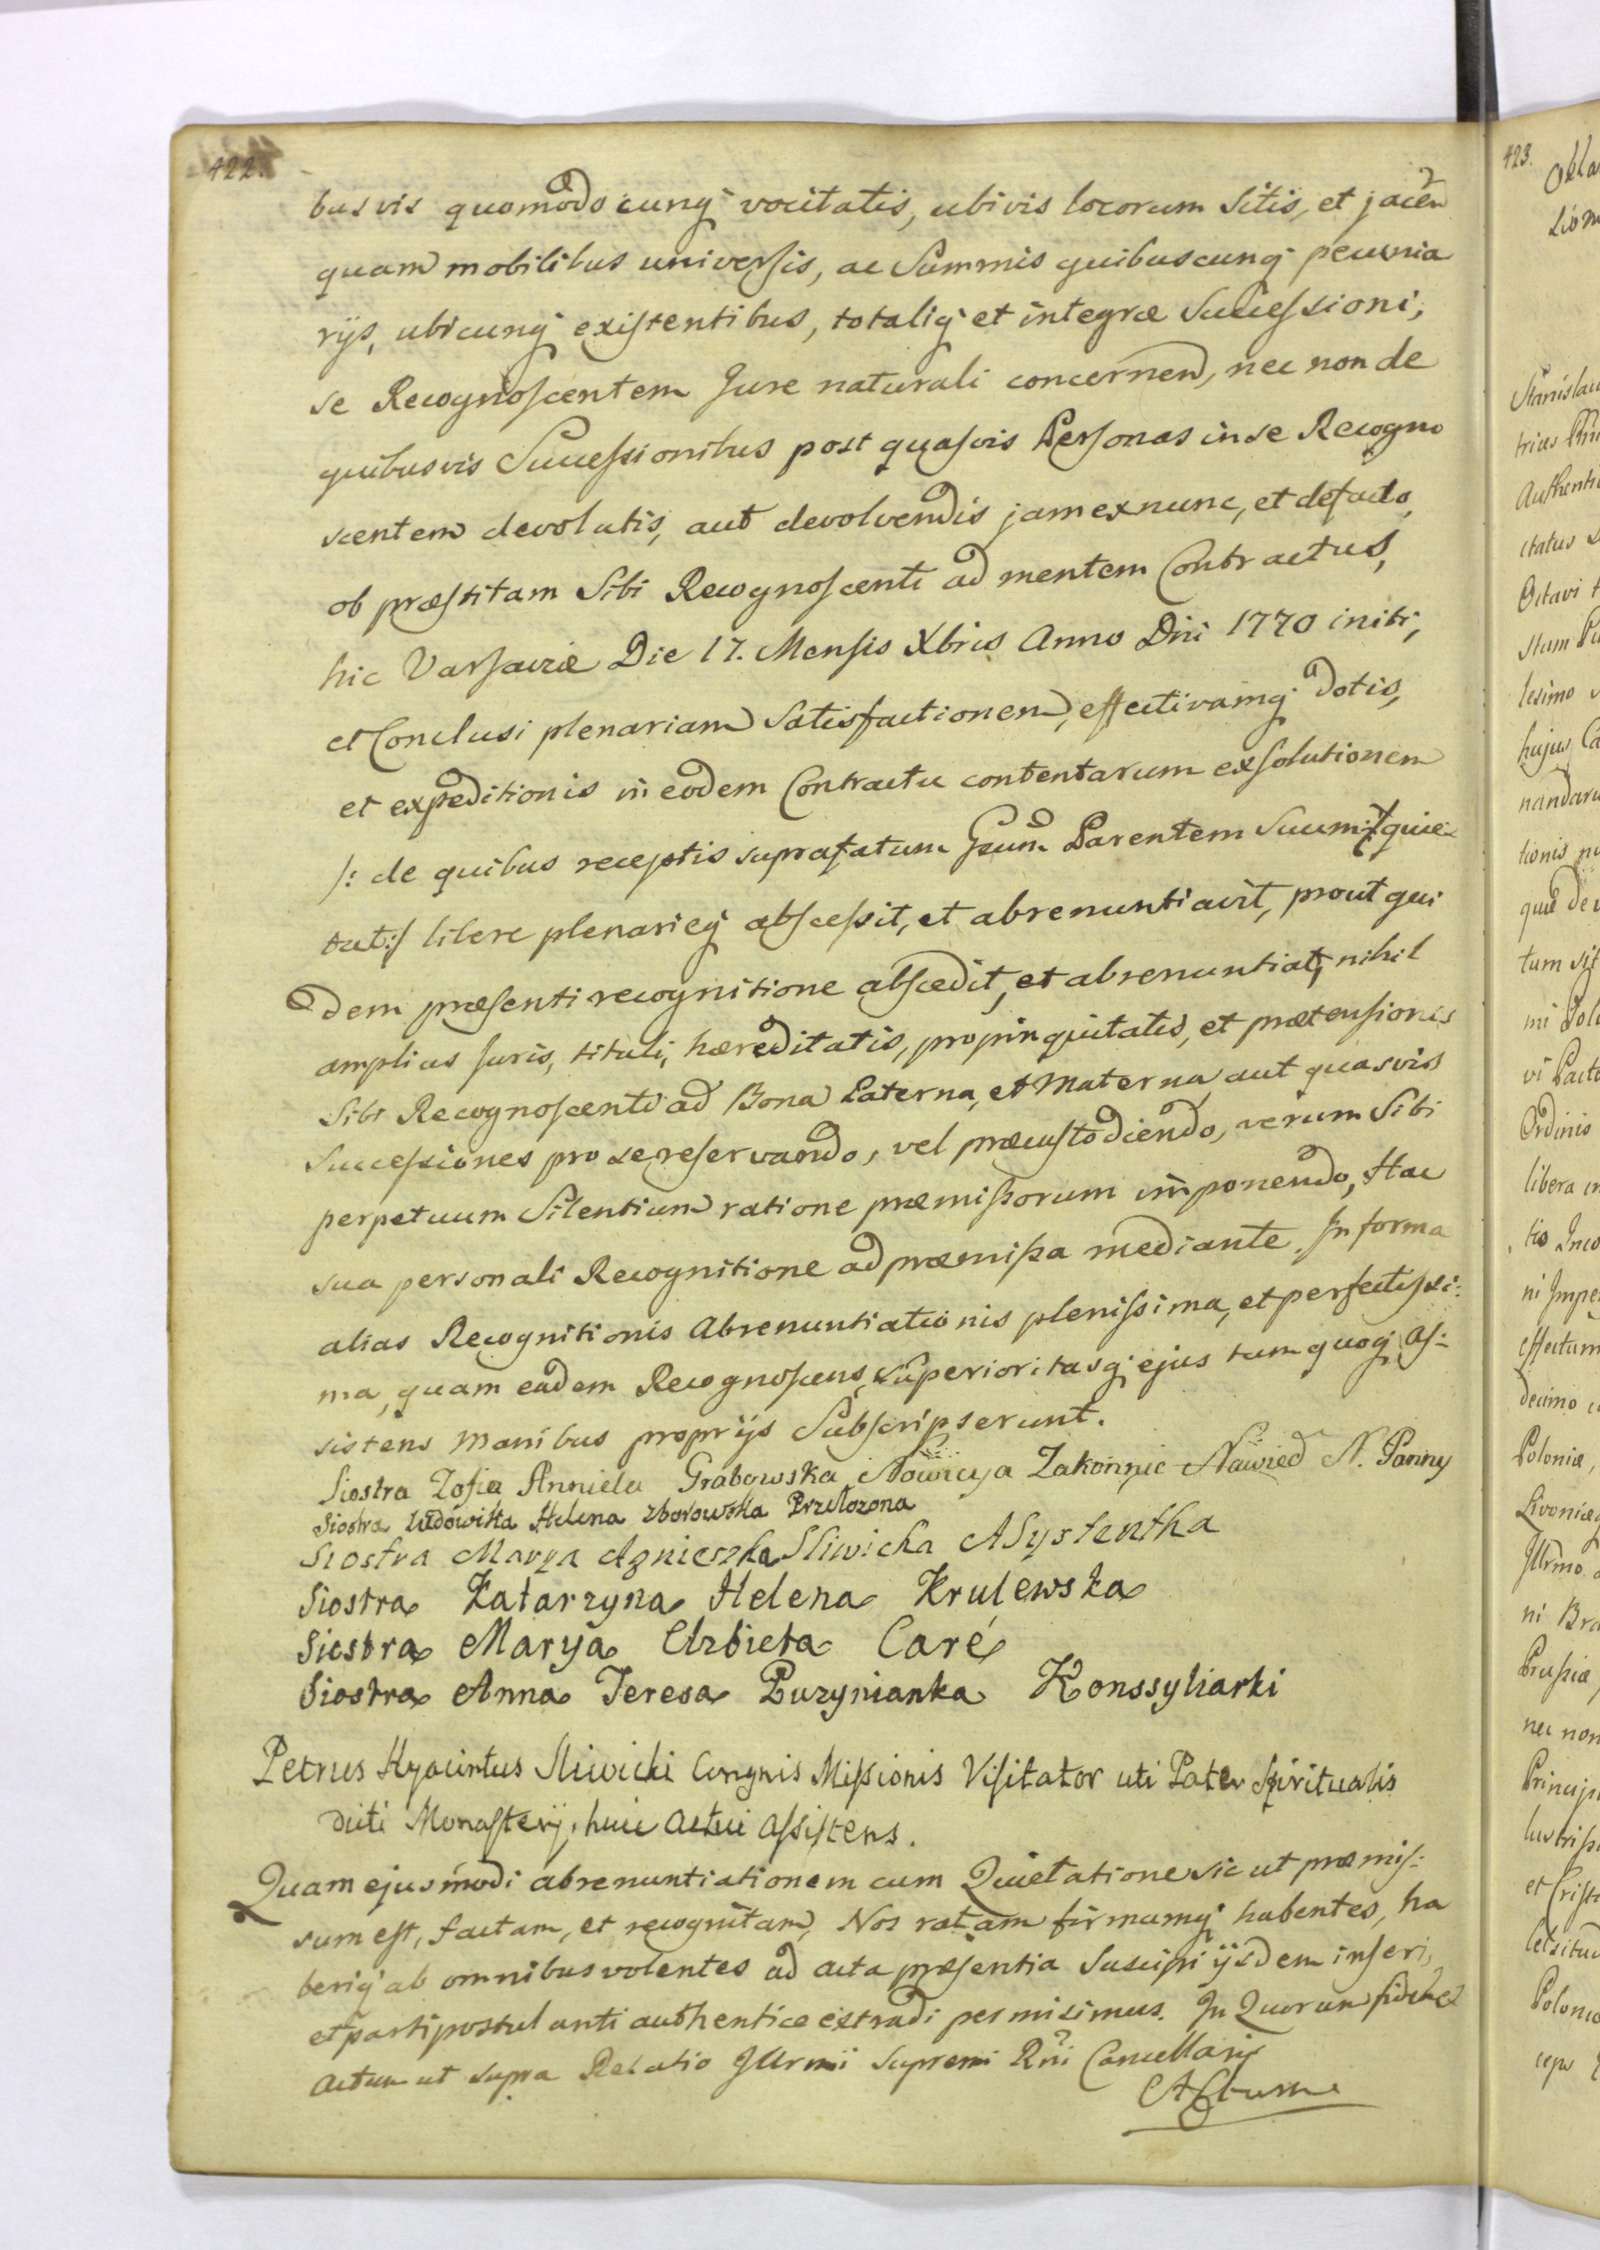 422.
busvis quomodocunq vocitatis, ubivis locorum Sitis, et jacen
quam mobilibus universis, ac Summis quibuscunq pecunia
rijs, ubicunq existentibus, totaliq et integræ Successioni,
se Recognoscentem Jure naturali concernen, nec non de
quibusvis Successionibus post quasvis Personas in se Recogno
scentem devolutis, aut devolvendis jam ex nunc, et defacto,
ob præstitam Sibi Recognoscenti ad mentem Contractus,
hic Varsaviæ Die 17. Mensis Xbris Anno Dni 1770 initi,
et Conclusi plenariam Satisfactionem, effectivamq Dotis,
et expeditionis in eodem Contractu contentarum exsolutionem
/: de quibus receptis suprafatum Gsum Parentem Suum quie-
tat :/ libere plenarieq abscessit, et abrenuntiavit, prout qui
dem præsenti recognitione abscedit, et abrenuntiat, nihil
amplius Juris, tituli, hæreditatis, propinquitatis, et prætensionis
Sibi Recognoscenti ad Bona Paterna, et Materna, aut quasvis
Successiones pro se reservando, vel præcustodiendo, verum Sibi
perpetuum Silentium ratione præmissorum imponendo, Hac
sua personali Recognitione ad præmissa mediante. In forma
alias Recognitionis Abrenuntiationis plenissima, et perfectissi-
ma, quam eadem Recognoscens, Superioritasq ejus tum quoq As-
sistens Manibus proprijs Subscripserunt.
Siostra Zofia Anniela Grabowska Nowicya Zakonnic Nawied N. Panny
Siostra Ludowika Helena Zborowska Przełozona
Siostra Marya Agnieszka Sliwicka ASystentka
Siostra Katarzyna Helena Krulewska
Siostra Marya Elzbieta Caré
Siostra Anna Teresa Puzynianka Konssyliarki
Petrus Hyacintus Sliwicki Congnis Missionis Visitator uti Pater Spiritualis
dicti Monasterij, huic Actui Assistens.
Quam ejusmodi abrenuntiationem cum Quietatione sic ut præmis-
sum est, factam, et recognitam, Nos ratam firmamq habentes, ha
beriq ab omnibus volentes ad acta præsentia Suscipi ijsdem inseri,
et parti postulanti authentice extradi permisimus. In Quorum fidem
Actum ut supra Relatio Illrmi Supremi Rni Cancellarij